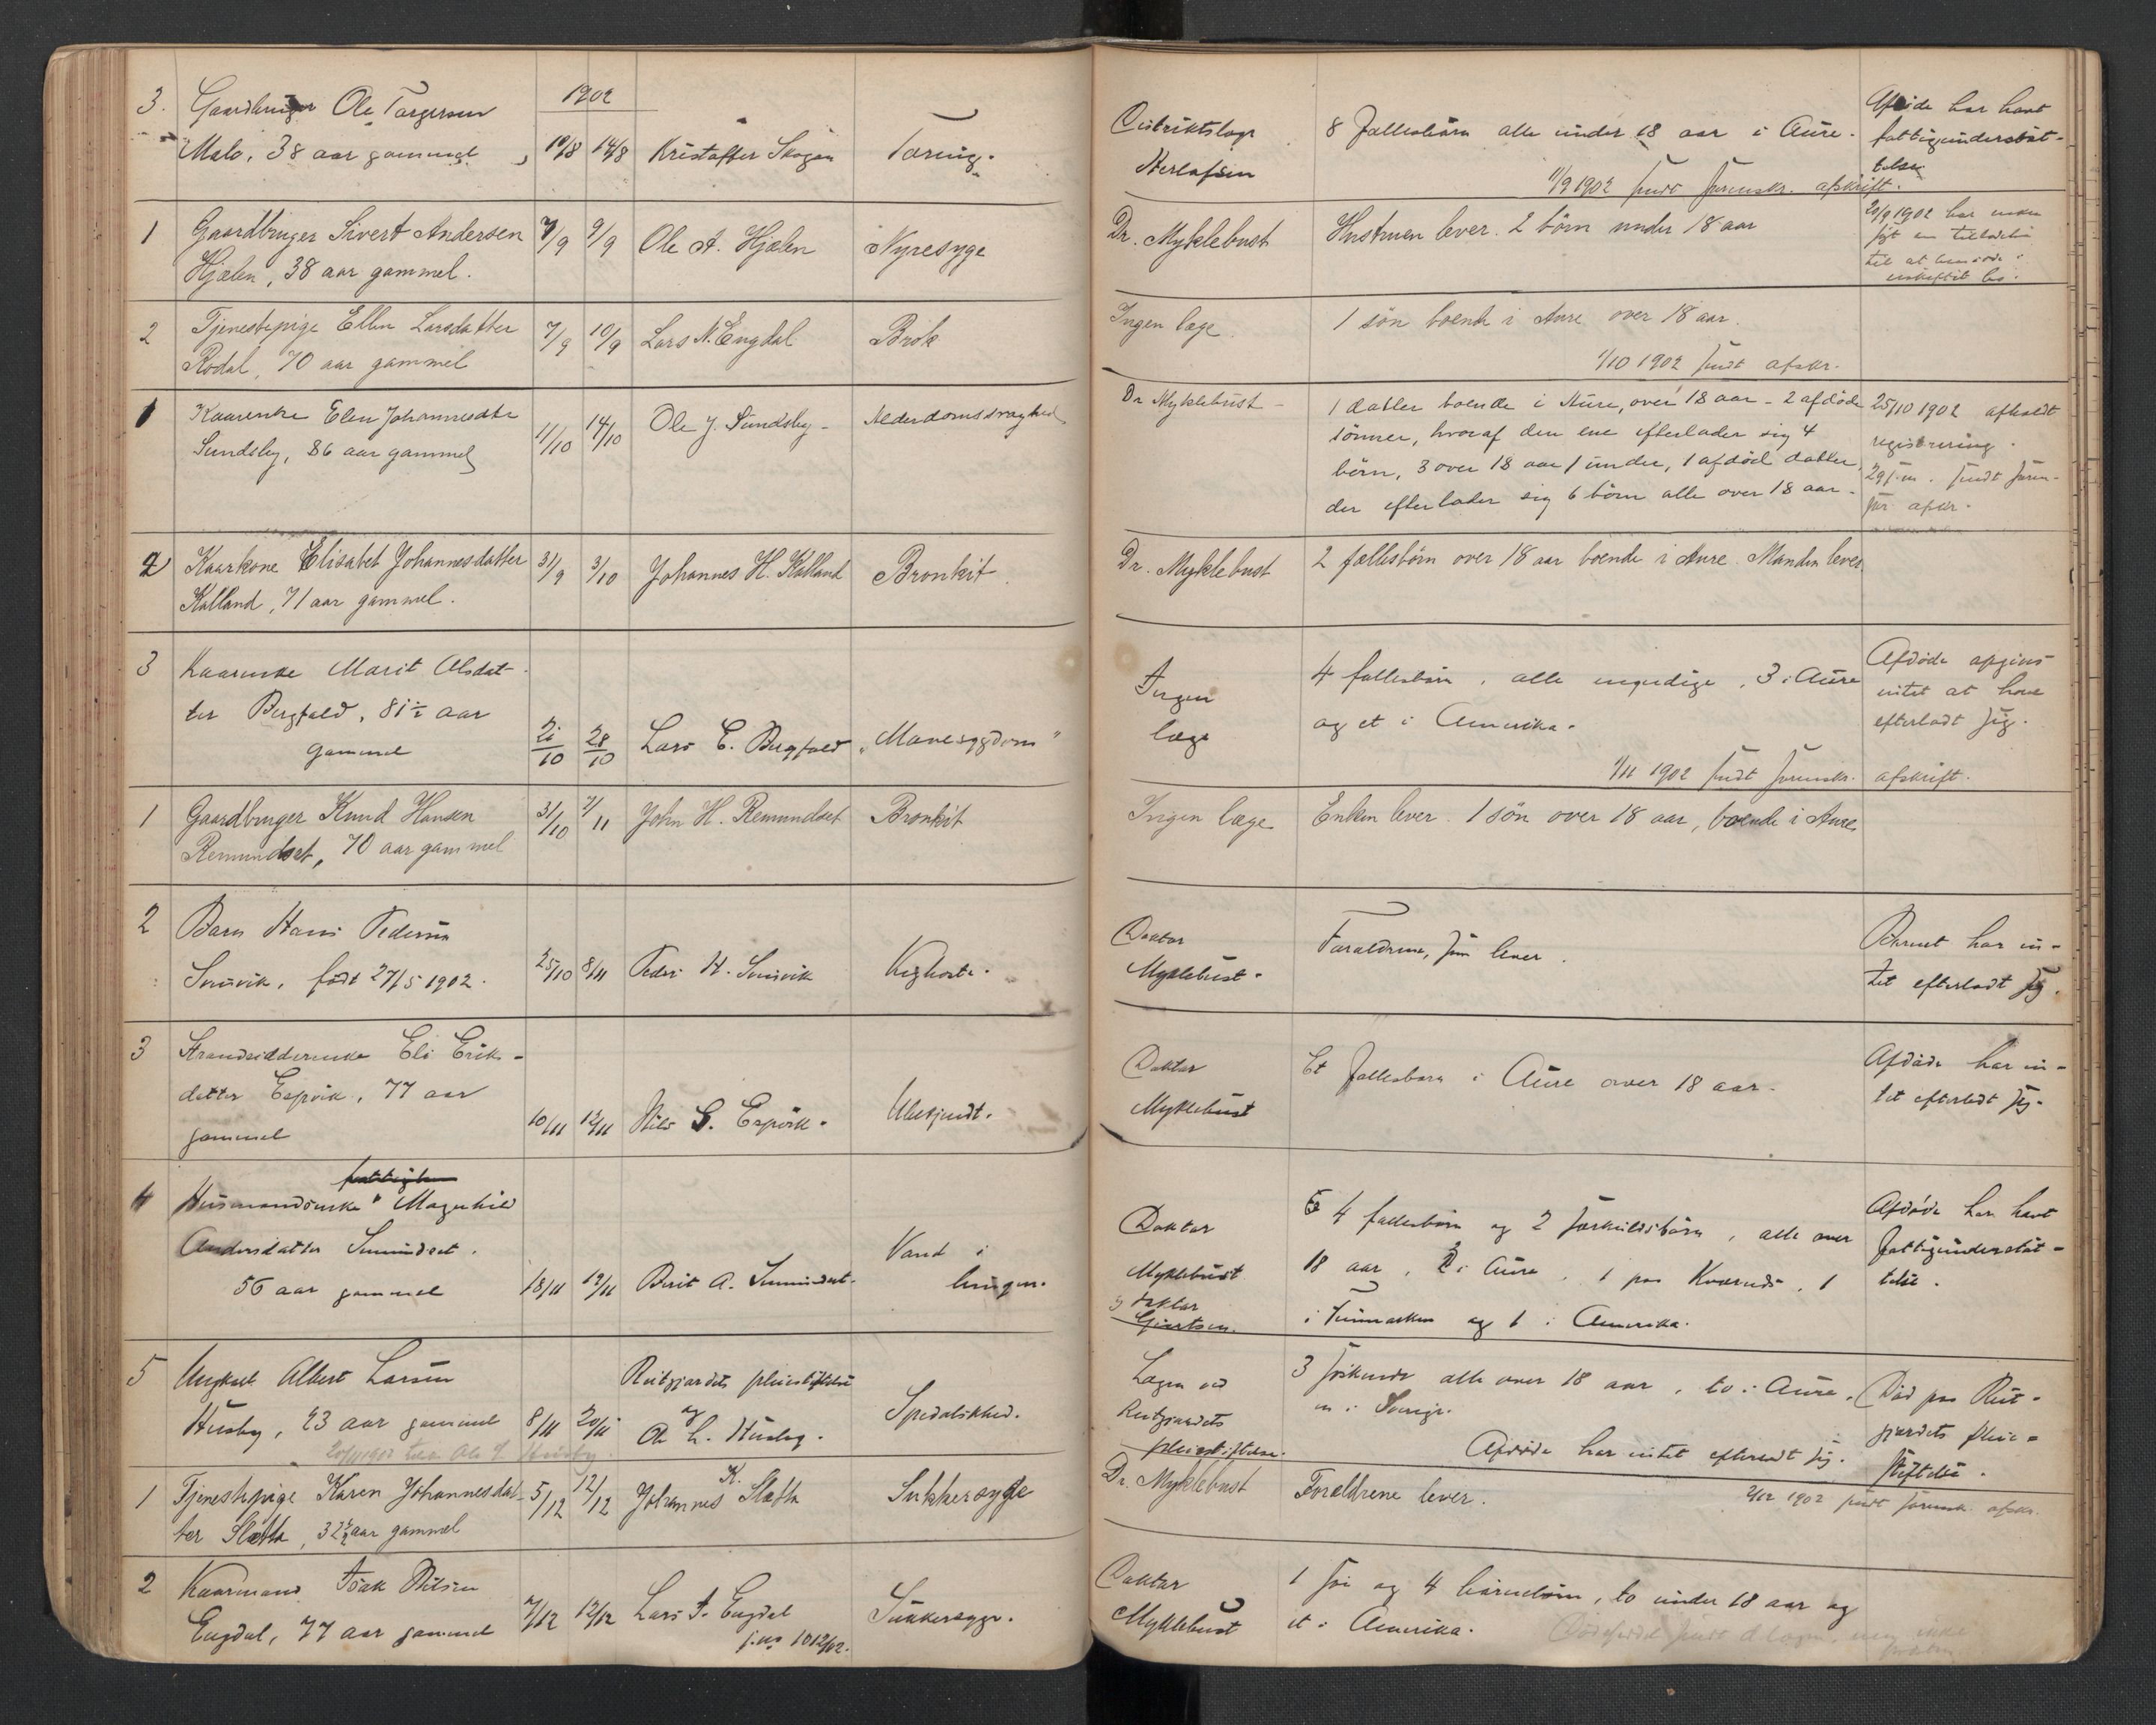 1902
3. Gaardbruger Ole Torgersen
Malo, 38 aar gammel, 10/8 14/8 Kristoffer Skogan Tæring.
Distriktslæge 8 fællesbörn alle under 18 aar i Aure. Afdöde har havt
Herlofsen fattigunderstöt-
telse
11/9 1902 sendt sorenskr. afskrift.
1 Gaardbruger Sivert Andersen 7/9 9/9 Ole A. Hjælen Nyresyge
Hjælen, 38 aar gammel.
Dr. Myklebust Hustruen lever. 2 börn under 18 aar 20/9 1902 har enken
til at
2 Tjenestepige Ellen Larsdatter 7/9 10/9 Lars N. Engdal Brok
Rodal, 70 aar gammel
Ingen læge. 1 sön boende i Aure over 18 aar.
1/10 1902 sendt afskr.
1 Kaarenke Elen Johannesdtr
Sundsby, 86 aar gammel 11/10 14/10 Ole J. Sundsby - Alderdomssvaghed
Dr Myklebust - 1 datter boende i Aure, over 18 aar - 2 afdöde 25/10 1902 afholdt
sönner, hvoraf den ene efterlader sig 4 registrering.
börn, 3 over 18 aar 1 under, 1 afdöd datter, 29 s.m. sendt soren-
der efterlader sig 6 börn alle over 18 aar. afskr.
2 Kaarkone Elisabet Johannesdatter 31/9 3/10 Johannes H. Kalland Bronkit.
Kalland, 71 aar gammel.
Dr. Myklebust 2 fællesbörn over 18 aar boende i Aure. Manden lever.
3 Kaarenke Marit Olsdat-
ter Bergfald, 81½ aar
gammel 21/10 28/10 Lars E. Bergfald „Mavesygdom"
Ingen 4 fællesbörn, alle myndige, 3 i Aure Afdöde opgives
læge og et i Amerika. intet at have
efterladt sig.
1/11 1902 sendt sorenskr. afskrift.
1 Gaardbruger Knud Hansen 31/10 7/11 John H. Remundset Bronkit
Remundset, 70 aar gammel
Ingen læge Enken lever. 1 sön over 18 aar, boende i Aure
2 Barn Hans Pedersen
Snusvik, födt 27/5 1902. 25/10 8/11 Peder H. Snusvik Kighoste.
Doktor Forældrene, som lever. Barnet har in-
Myklebust. tet efterladt sig.
3 Strandsidderenke Eli Erik-
datter Espvik, 77 aar
gammel 10/11 12/11 Nils G. Espvik. Ubekjendt.
Doktor Et fællesbarn i Aure over 18 aar. Afdöde har in-
Myklebust tet efterladt sig.
4 Husmandsenke Magnhild
Andersdatter Smundset.
56 aar gammel 18/11 19/11 Berit A. Smundset. Vand i
lungen.
Doktor 4 fællesbörn og 2 særkuldsbörn, alle over Afdöde har havt
Myklebust 18 aar, 3 i Aure, 1 paa Kværnæs, 1 fattigunderstöt-
Doktor i Finmarken og 1 i Amerika. telse.
Giertsen.
5 Ungkarl Albert Larsen Reitgjærdets pleiestiftelse
og
Husby, 23 aar gammel 8/11 20/11 Ole L. Husby. Spedalskhed.
Lægen ved 3 söskende alle over 18 aar, to i Aure. Död paa Reit-
Reitgjærdets en i Sverige. gjærdets pleie-
pleiestiftelse. Afdöde har intet efterladt sig. stiftelse.
1 Tjenestepige Karen Johannesdat- 5/12 12/12 Johannes K. Slætta Sukkersyge
ter Slætta, 32½ aar gammel
Dr. Myklebust Forældrene lever. 2/12 1902 sendt sorensk. afskr.
2 Kaarmand Isak Nilsen
Engdal, 77 aar gammel 7/12 12/12 Lars I. Engdal Sukkersyge.
j.no 1012/02.
Doktor 1 sön og 4 börnebörn, to under 18 aar og
Myklebust et i Amerika.